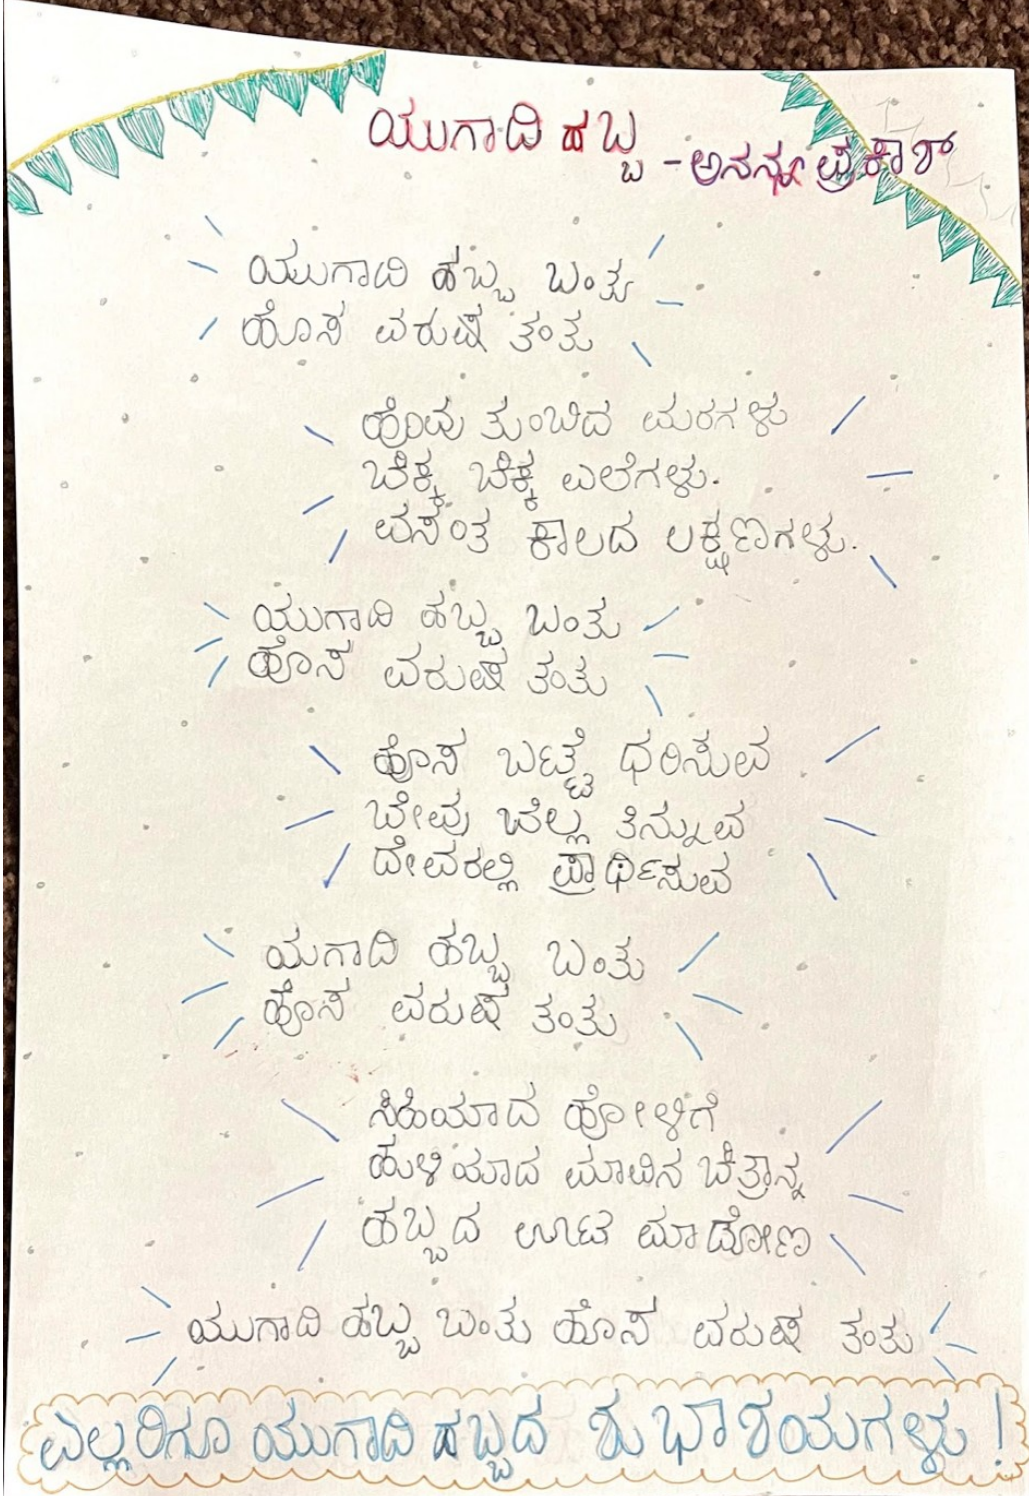 ಯುಗಾದಿ ಹಬ್ಬ - ಅನನ್ಯ ಪ್ರಕಾಶ್
ಯುಗಾದಿ ಹಬ್ಬ ಬಂತು
ಹೊಸ ವರುಷ ತಂತು
ಹೊವು ತುಂಬಿದ ಮರಗಳು
ಚಿಕ್ಕ ಚಿಕ್ಕ ಎಲೆಗಳು.
ವಸಂತ ಕಾಲದ ಲಕ್ಷಣಗಳು.
ಯುಗಾದಿ ಹಬ್ಬ ಬಂತು
ಹೊಸ ವರುಷ ತಂತು
ಹೊಸ ಬಟ್ಟೆ ಧರಿಸುವ
ಬೇವು ಬೆಲ್ಲ ತಿನ್ನುವ
ದೇವರಲ್ಲಿ ಪ್ರಾರ್ಥಿಸುವ
ಯುಗಾದಿ ಹಬ್ಬ ಬಂತು
ಹೊಸ ವರುಷ ತಂತು
ಸಿಹಿಯಾದ ಹೋಳಿಗೆ
ಹುಳಿಯಾದ ಮಾವಿನ ಚಿತ್ರಾನ್ನ
ಹಬ್ಬದ ಊಟ ಮಾಡೋಣ
ಯುಗಾದಿ ಹಬ್ಬ ಬಂತು ಹೊಸ ವರುಷ ತಂತು
ಎಲ್ಲರಿಗೂ ಯುಗಾದಿ ಹಬ್ಬದ ಶುಭಾಶಯಗಳು!